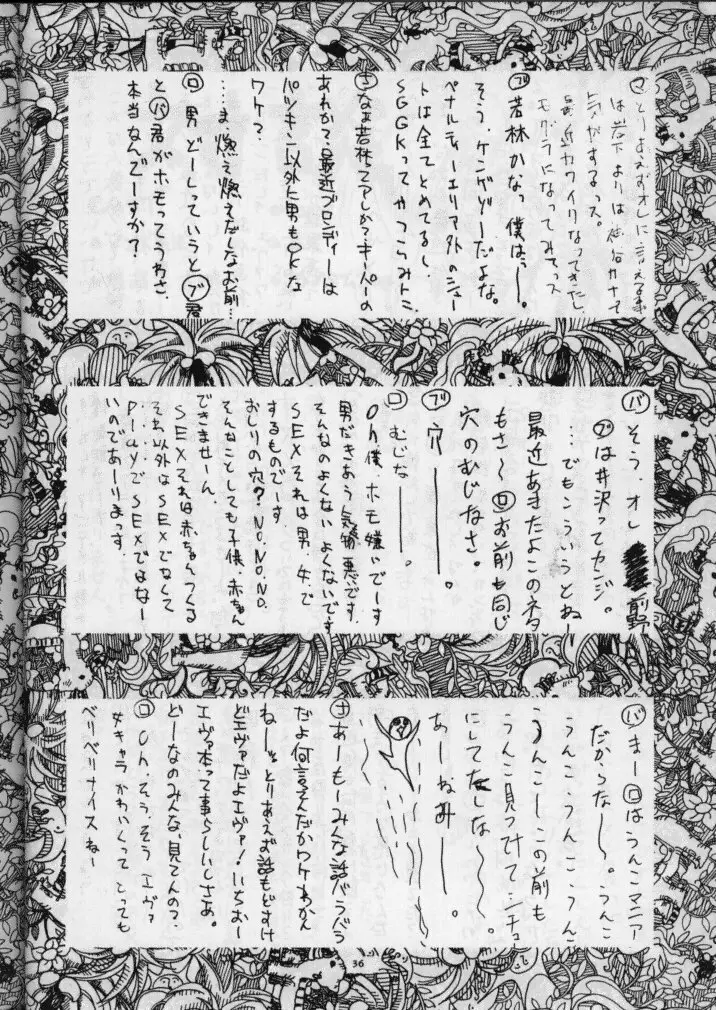 マ とりあえずオレに言える事
は岩下よりは
気がするっス。
最近カワイクなってきたし
モグラになってみてっス
ブ 若林かなっ僕はっー。
そう、ケンゲゾーだよな。
ペナルティーエリア外のシュー
トは全てとめてるし、
SGGKってやつらみトニ
キ なぁ若林ってアレか?キーパーの
あれか?、最近ブロンディーは
パツキン以外に男もOKな
ワケ?
…ま、燃え燃えだしなお前…
ロ 男どーしっていうとブ君
とバ君がホモってうわさ、
本当なんでーすか?
バ そう、オレ 前野
ブは井沢ってカンジ。
…でもこういうとねー
最近あきたよこのネタ
もさ〜ロお前も同じ
穴のむじなさ。
ブ 穴ーーー。
ロ むじなーーー。
Oh僕、ホモ嫌いでーす
男だきあう気持悪いです。
そんなのよくないよくないです
SEXそれは男、女で
するものでーす。
おしりの穴?NO.NO.NO.
そんなことしても子供、赤ちゃん
できませーん
SEXそれは赤ちゃんつくる
それ以外はSEXでなくして
……PLAYでSEXではなー
いのであーりまっす。
バ まーロはうんこマニア
だからなー〜。うんこ
うんこ、うんこ、うんこ
うんこーこの前も
うんこ見ってけてンチュ
にしてたしな〜〜。
あーねみーー。
キ あーもーみんな話バラバラ
だよ何言えんだかワケわかん
ねーッとりあえず話もどすけ
どエヴァだよエヴァ!いちおー
エヴァ本って事らしいしさぁ。
どーなのみんな、見てんの?、
ロ Oh、そう、そう エヴァ
女キャラかわいくってとっても
ベリーベリナイスねー
36